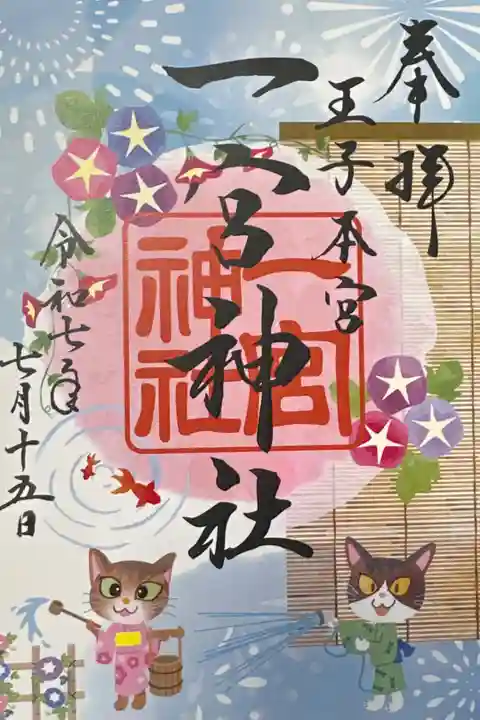 奉拝
王子本宮
一宮神社
一宮
神社
令和七年
七月十五日